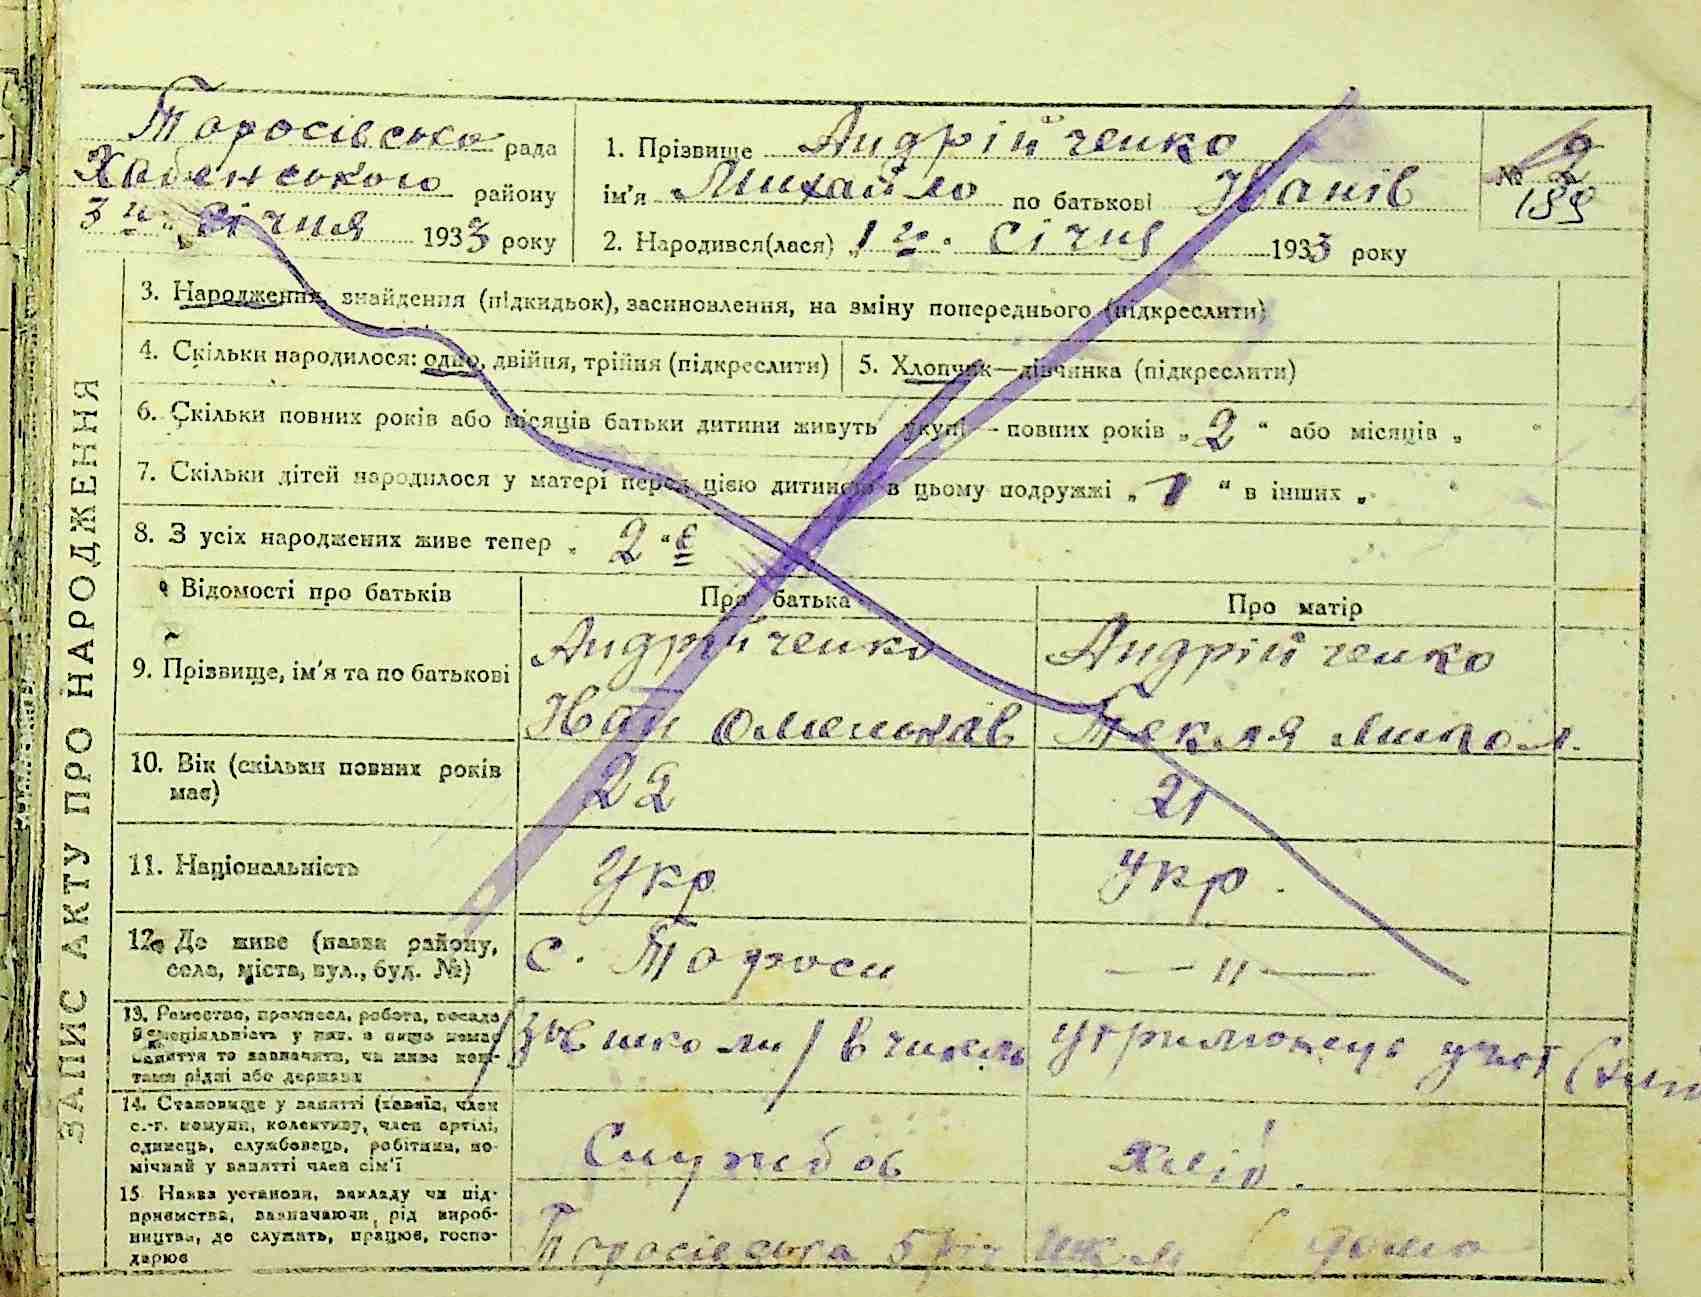 ЗАПИС АКТУ ПРО НАРОДЖЕННЯ
Торосівська рада
Хабенського району
3 го січня 1933 року
1. Прізвище Андрійченко
ім'я Михайло по батькові Іванів
2. Народився(лася) „1 го. січня 1933 року
№ 2
199
3. Народження, знайдення (підкидьок), засиновлення, на зміну попереднього (підкреслити)
4. Скільки народилося: одно, двійня, трійня (підкреслити)
5. Хлопчик—дівчинка (підкреслити)
6. Скільки повних років або місяців батьки дитини живуть укупі — повних років „ 2 “ або місяців „ “
7. Скільки дітей народилося у матері перед цією дитиною в цьому подружжі „ 1 “ в інших „ “
8. З усіх народжених живе тепер „ 2 “є
Відомості про батьків
Про батька
Про матір
9. Прізвище, ім'я та по батькові
Андрійченко
Іван Омельков
Андрійченко
Текля Микол.
10. Вік (скільки повних років має)
22
21
11. Національність
Укр
Укр.
12. Де живе (назва району, села, міста, вул., буд. №)
с. Тороси
— — " —
13. Ремество, промисел, робота, посада
й спеціяльність у них, а якщо немає
заняття то зазначити, чи живе кош-
тами рідні або держави
школи / вчитель
утриманець учит
14. Становище у занятті (хазяїн, член
с.-г. комуни, колективу, член артілі,
одинець, службовець, робітник, по-
мічний у занятті член сім'ї
Службов
15. Назва установи, закладу чи під-
приємства, зазначаючи рід вироб-
ництва, де служить, працює, госпо-
дарює
Торосівська 5 річ шкл
дома